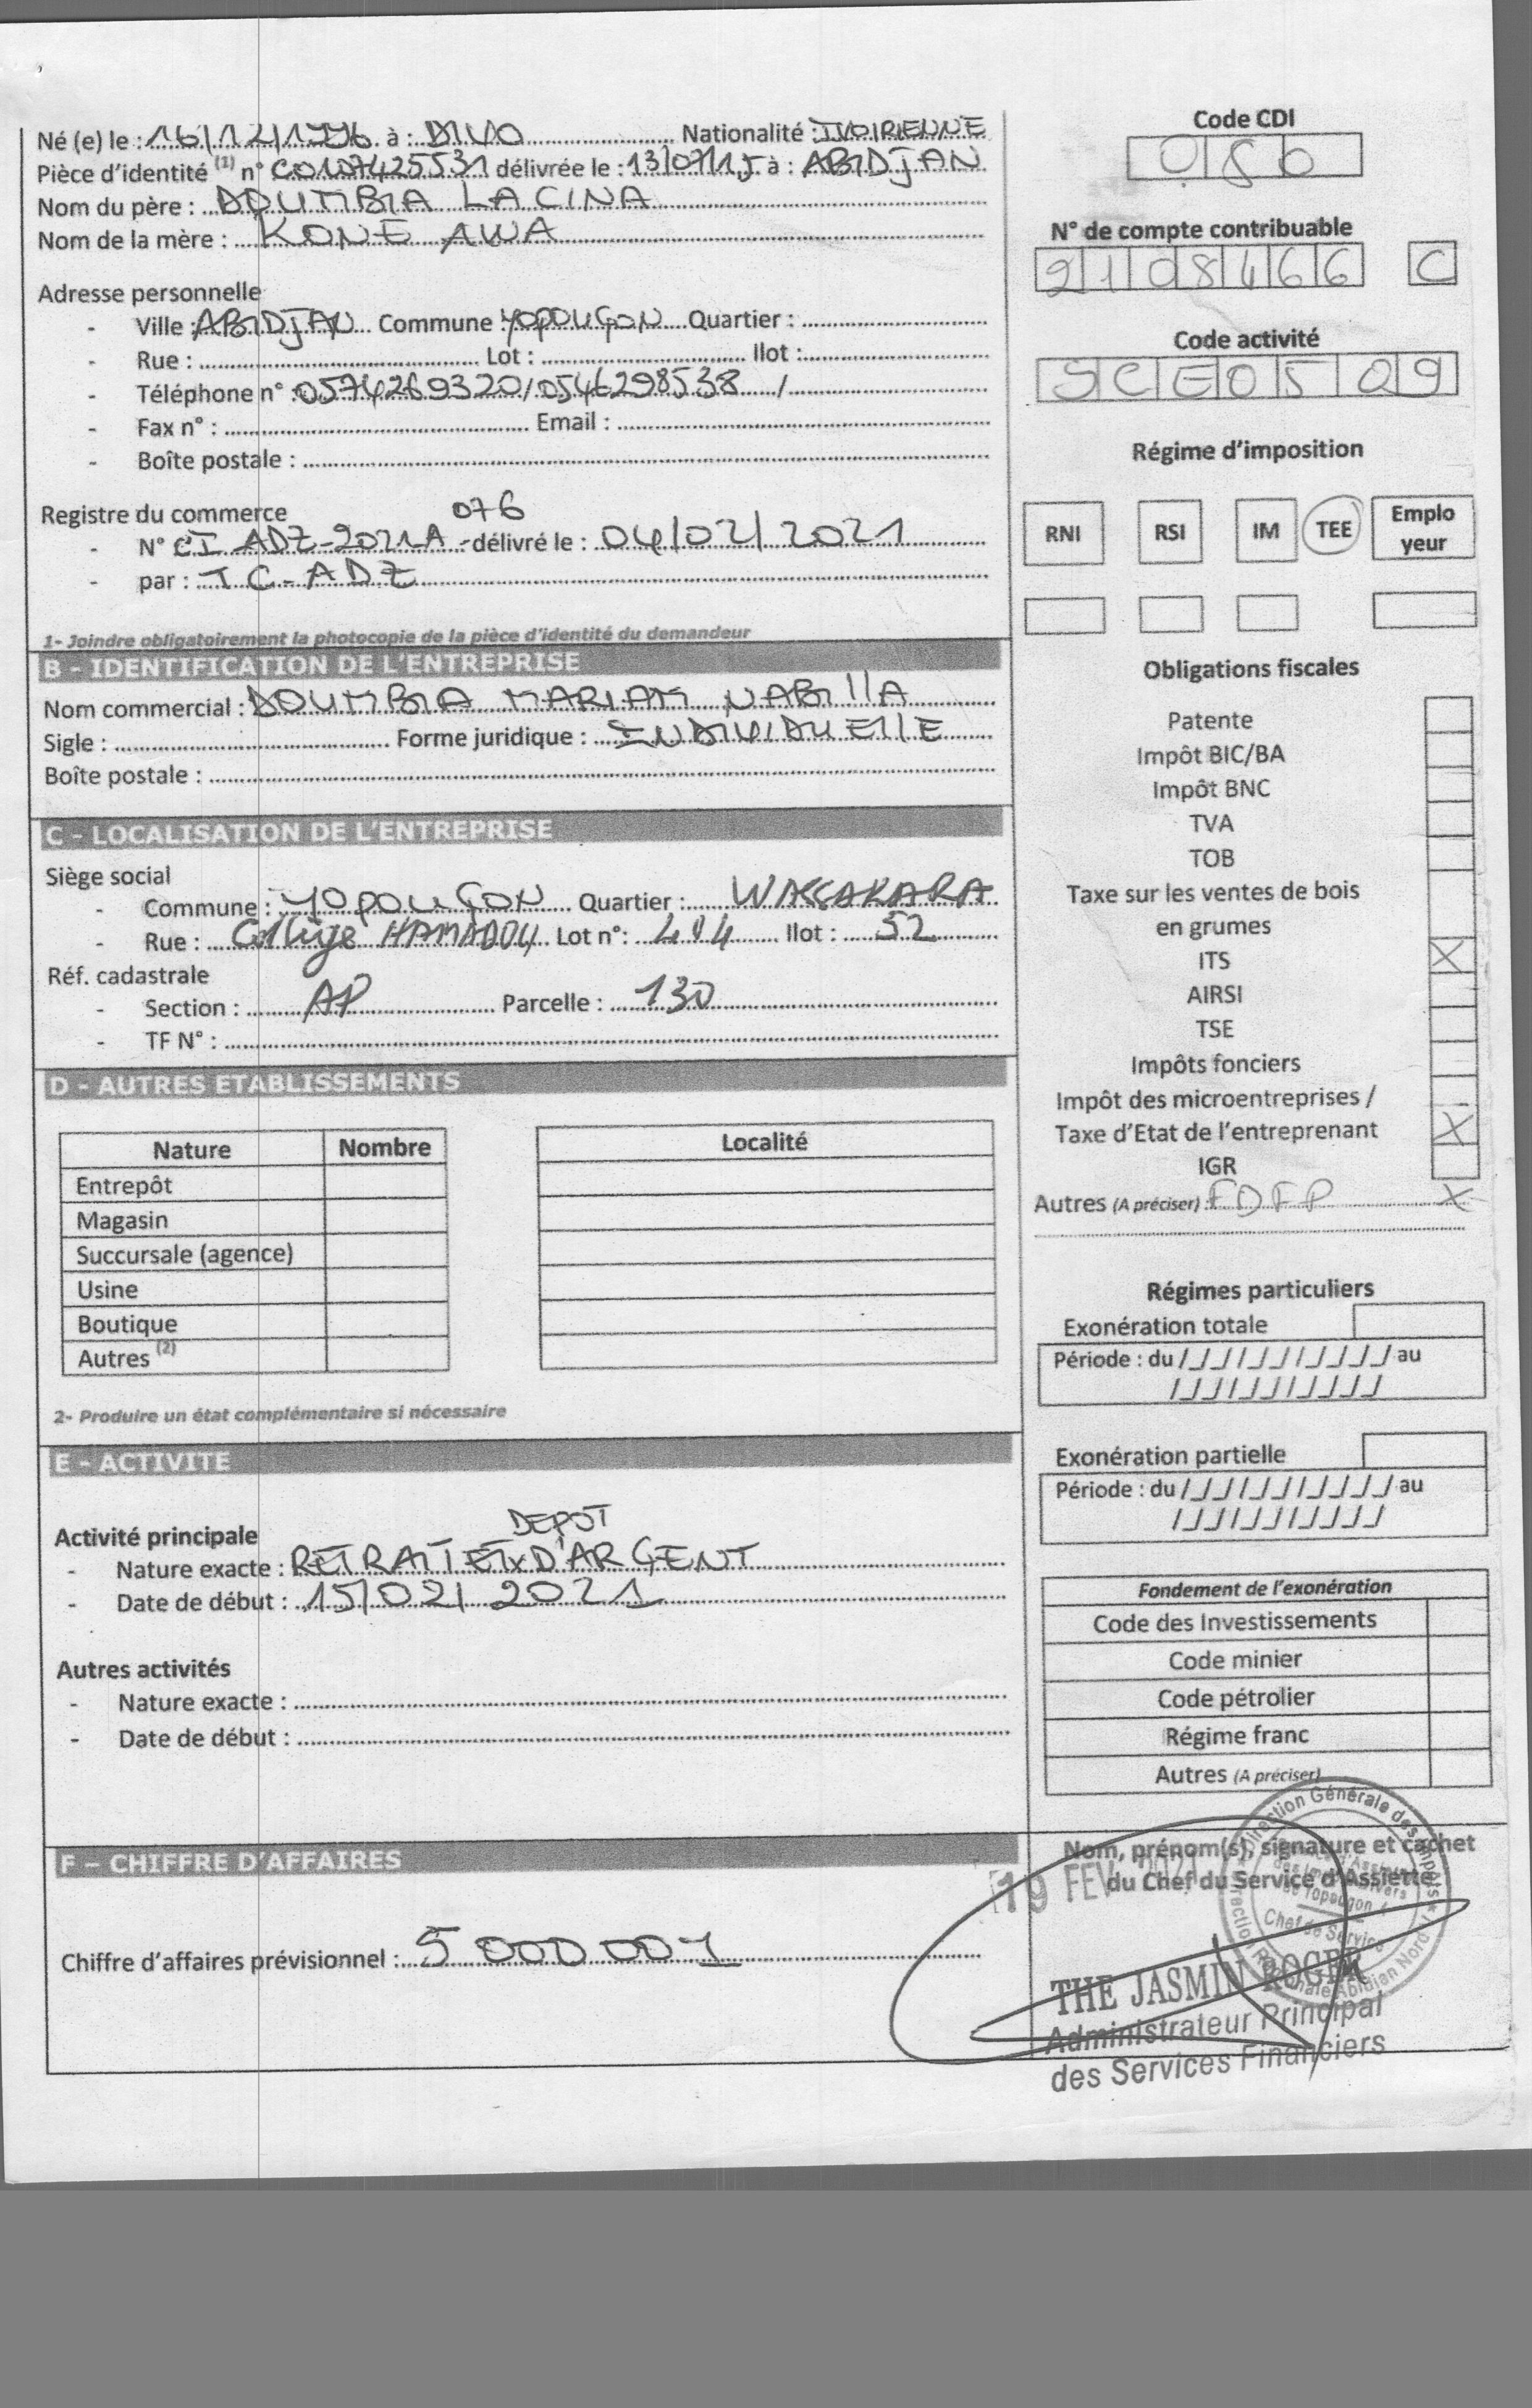 Né (e) le : 16/12/1996 à : DIVO Nationalité : IVOIRIENNE
Pièce d'identité (1) n° C0107425531 délivrée le : 13/07/15 à : ABIDJAN
Nom du père : DOUMBIA LACINA
Nom de la mère : KONE AWA
Adresse personnelle
- Ville : ABIDJAN Commune : YOPOUGON Quartier :
- Rue : Lot : Ilot :
- Téléphone n° : 0574269320/0546298538 /
- Fax n° : Email :
- Boîte postale :
Registre du commerce
076
- N° CI ADZ-2021A - délivré le : 04/02/2021
- par : TC-ADZ
1- Joindre obligatoirement la photocopie de la pièce d'identité du demandeur
B - IDENTIFICATION DE L'ENTREPRISE
Nom commercial : DOUMBIA MARIAM NABIllA
Sigle : Forme juridique : INDIVIDUEllE
Boîte postale :
C - LOCALISATION DE L'ENTREPRISE
Siège social
- Commune : YOPOUGON Quartier : WASSAKARA
- Rue : Collège HAMADOU Lot n° : Ilot : 52
Réf. cadastrale
- Section : AP Parcelle : 130
- TF N° :
D - AUTRES ETABLISSEMENTS
Nature Nombre Localité
Entrepôt
Magasin
Succursale (agence)
Usine
Boutique
Autres (2)
2- Produire un état complémentaire si nécessaire
E - ACTIVITE
Activité principale
DEPOT
- Nature exacte : RETRAIT ET x D'ARGENT
- Date de début : 15/02/2021
Autres activités
- Nature exacte :
- Date de début :
F – CHIFFRE D'AFFAIRES
Chiffre d'affaires prévisionnel : 5 000 001
Code CDI
086
N° de compte contribuable
2108466 C
Code activité
SCE0509
Régime d'imposition
RNI RSI IM TEE Emplo
yeur
Obligations fiscales
Patente
Impôt BIC/BA
Impôt BNC
TVA
TOB
Taxe sur les ventes de bois
en grumes
ITS X
AIRSI
TSE
Impôts fonciers
Impôt des microentreprises /
Taxe d'Etat de l'entreprenant X
IGR
Autres (A préciser) : FDFP X
Régimes particuliers
Exonération totale
Période : du /_/_/ /_/_/ /_/_/_/_/ au
/_/_/ /_/_/ /_/_/_/_/
Exonération partielle
Période : du /_/_/ /_/_/ /_/_/_/_/ au
/_/_/ /_/_/ /_/_/_/_/
Fondement de l'exonération
Code des Investissements
Code minier
Code pétrolier
Régime franc
Autres (A préciser)
Nom, prénom(s), signature et cachet
du Chef du Service d'Assiette
19 FEV 2021
Direction Générale des Impôts
Direction Régionale Abidjan Nord
d'Assiette
des Impôts Divers
de Yopougon
Chef de Service
THE JASMIN ROGER
Administrateur Principal
des Services Financiers